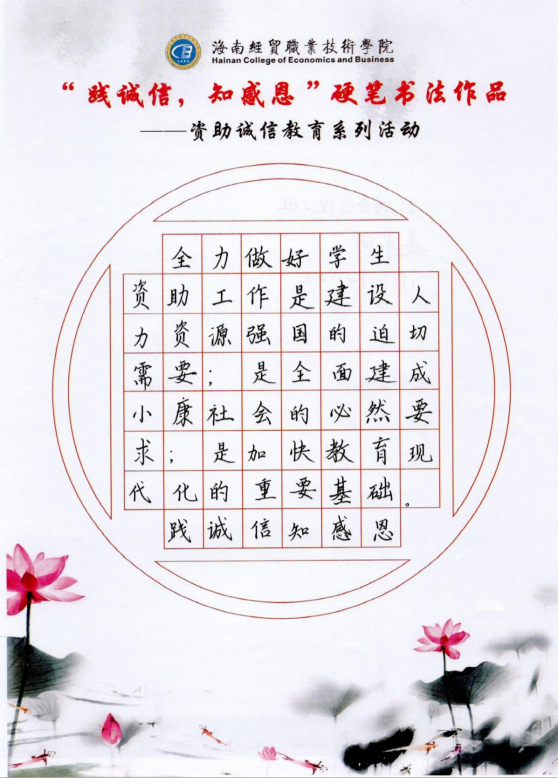 海南經貿職業技術學院
Hainan College of Economics and Business
“践诚信，知感恩”硬笔书法作品
——资助诚信教育系列活动
全力做好学生
资助工作是建设人
力资源强国的迫切
需要；是全面建成
小康社会的必然要
求；是加快教育现
代化的重要基础。
践诚信知感恩